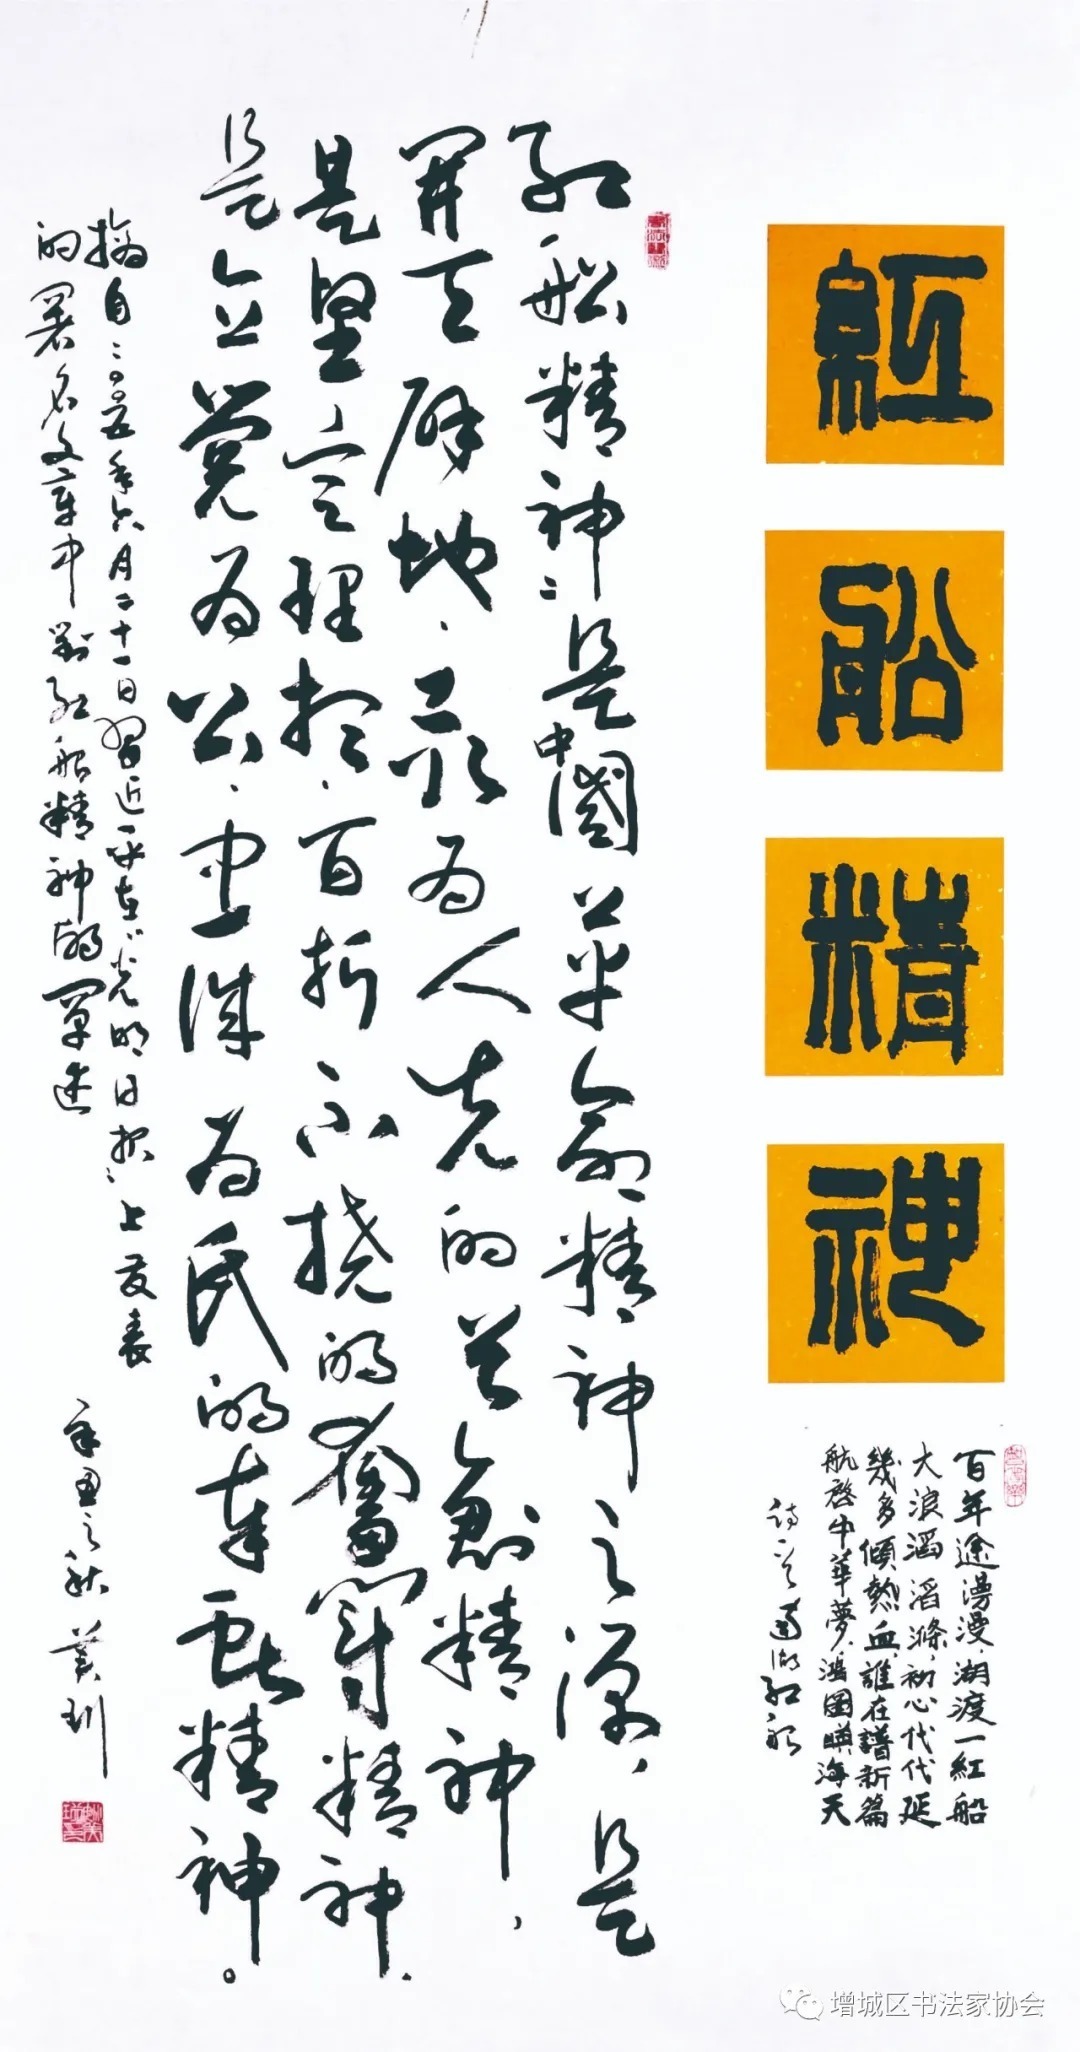 紅
船
精
神
百年途漫漫,湖渡一紅船
大浪滔滔滌,初心代代延
幾多傾熱血,誰在譜新篇
航啓中華夢,鴻圖映海天
南湖红船
红船精神:是中國革命精神之源,是
開天辟地、敢为人先的首創精神,
是堅定理想、百折不挠的奮鬥精神、
是立党为公、忠诚为民的奉献精神。
摘自二〇〇五年六月二十一日習近平在"光明日报"上发表
的署名文章中對红船精神的闡述
辛丑之秋 美玔
增城区书法家协会